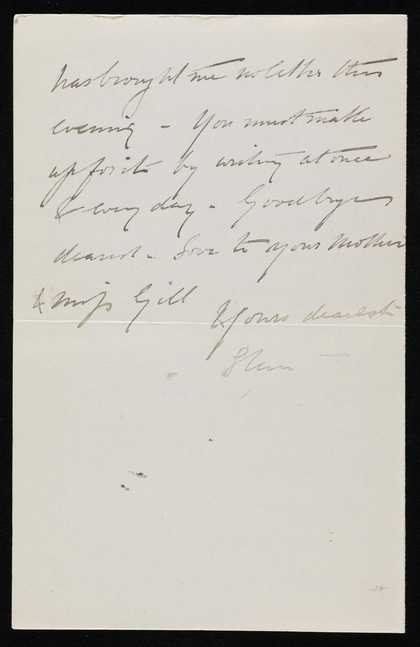 has brought me no letter this
evening - You must make
up for it by writing at once
& every day - Goodbye
dearest - Love to your Mother
& Miss Gill
Yours dearest